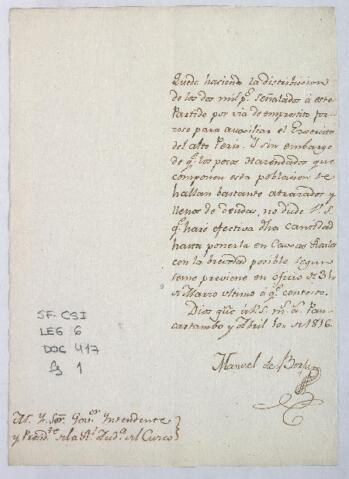 Quedo haciendo la distribucion
de los dos mil p.s señalados à este
Partido por via de emprestito for-
zoso para auxiliar el Exercito
del alto Perú. Y sin embargo
de q.e los pocos Hacendados que
componen esta poblacion se
hallan bastante atrazados y
llenos de deudas, no dude V.S.
q.e haré efectiva dha cantidad
hasta ponerla en Caxas Reales
con la brevedad posible segun
se me previene en oficio de 31
de Marzo ultimo à q.e contexto.
Dios gũe à V.S. m.s a.s Pau-
cartambo y Abril 1o,, de 1816.
Manuel de
SF-CSI
LEG 6
DOC 417
f 1
M. Y. Sor. Gov.or Yntendente
y Presid.te de la R.l Aud.a del Cuzco